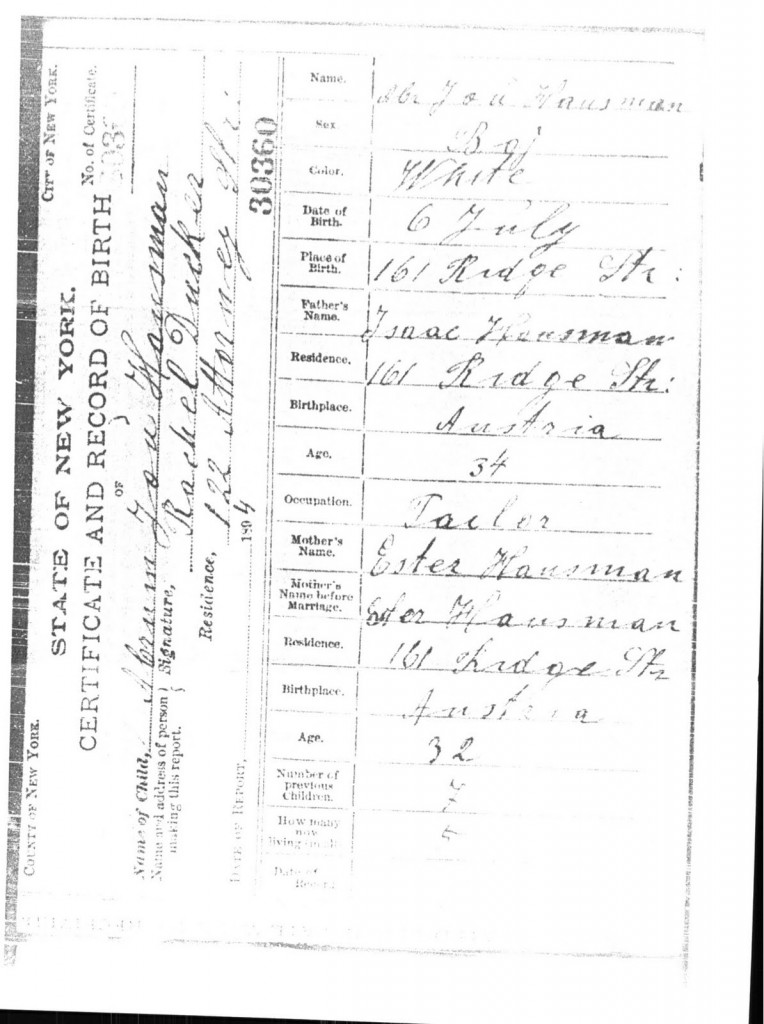 COUNTY OF NEW YORK. CITY OF NEW YORK.
STATE OF NEW YORK.
CERTIFICATE AND RECORD OF BIRTH
No. of Certificate.
OF
Name of Child, Hausman
Name and address of person making this report. } Signature, Rachel
Residence, 122 Attorney Str:
DATE OF REPORT, 1894
30360
Name. Hausman
Sex Boj
Color. White
Date of Birth. 6 July
Place of Birth. 161 Ridge Str:
Father's Name. Isaac Hausman
Residence. 161 Ridge Str:
Birthplace. Austria
Age. 34
Occupation. Tailor
Mother's Name. Ester Hausman
Mother's Name before Marriage. Ester Hausman
Residence. 161 Ridge Str
Birthplace. Austria
Age. 32
Number of previous Children.
How many now living
Date of Record.